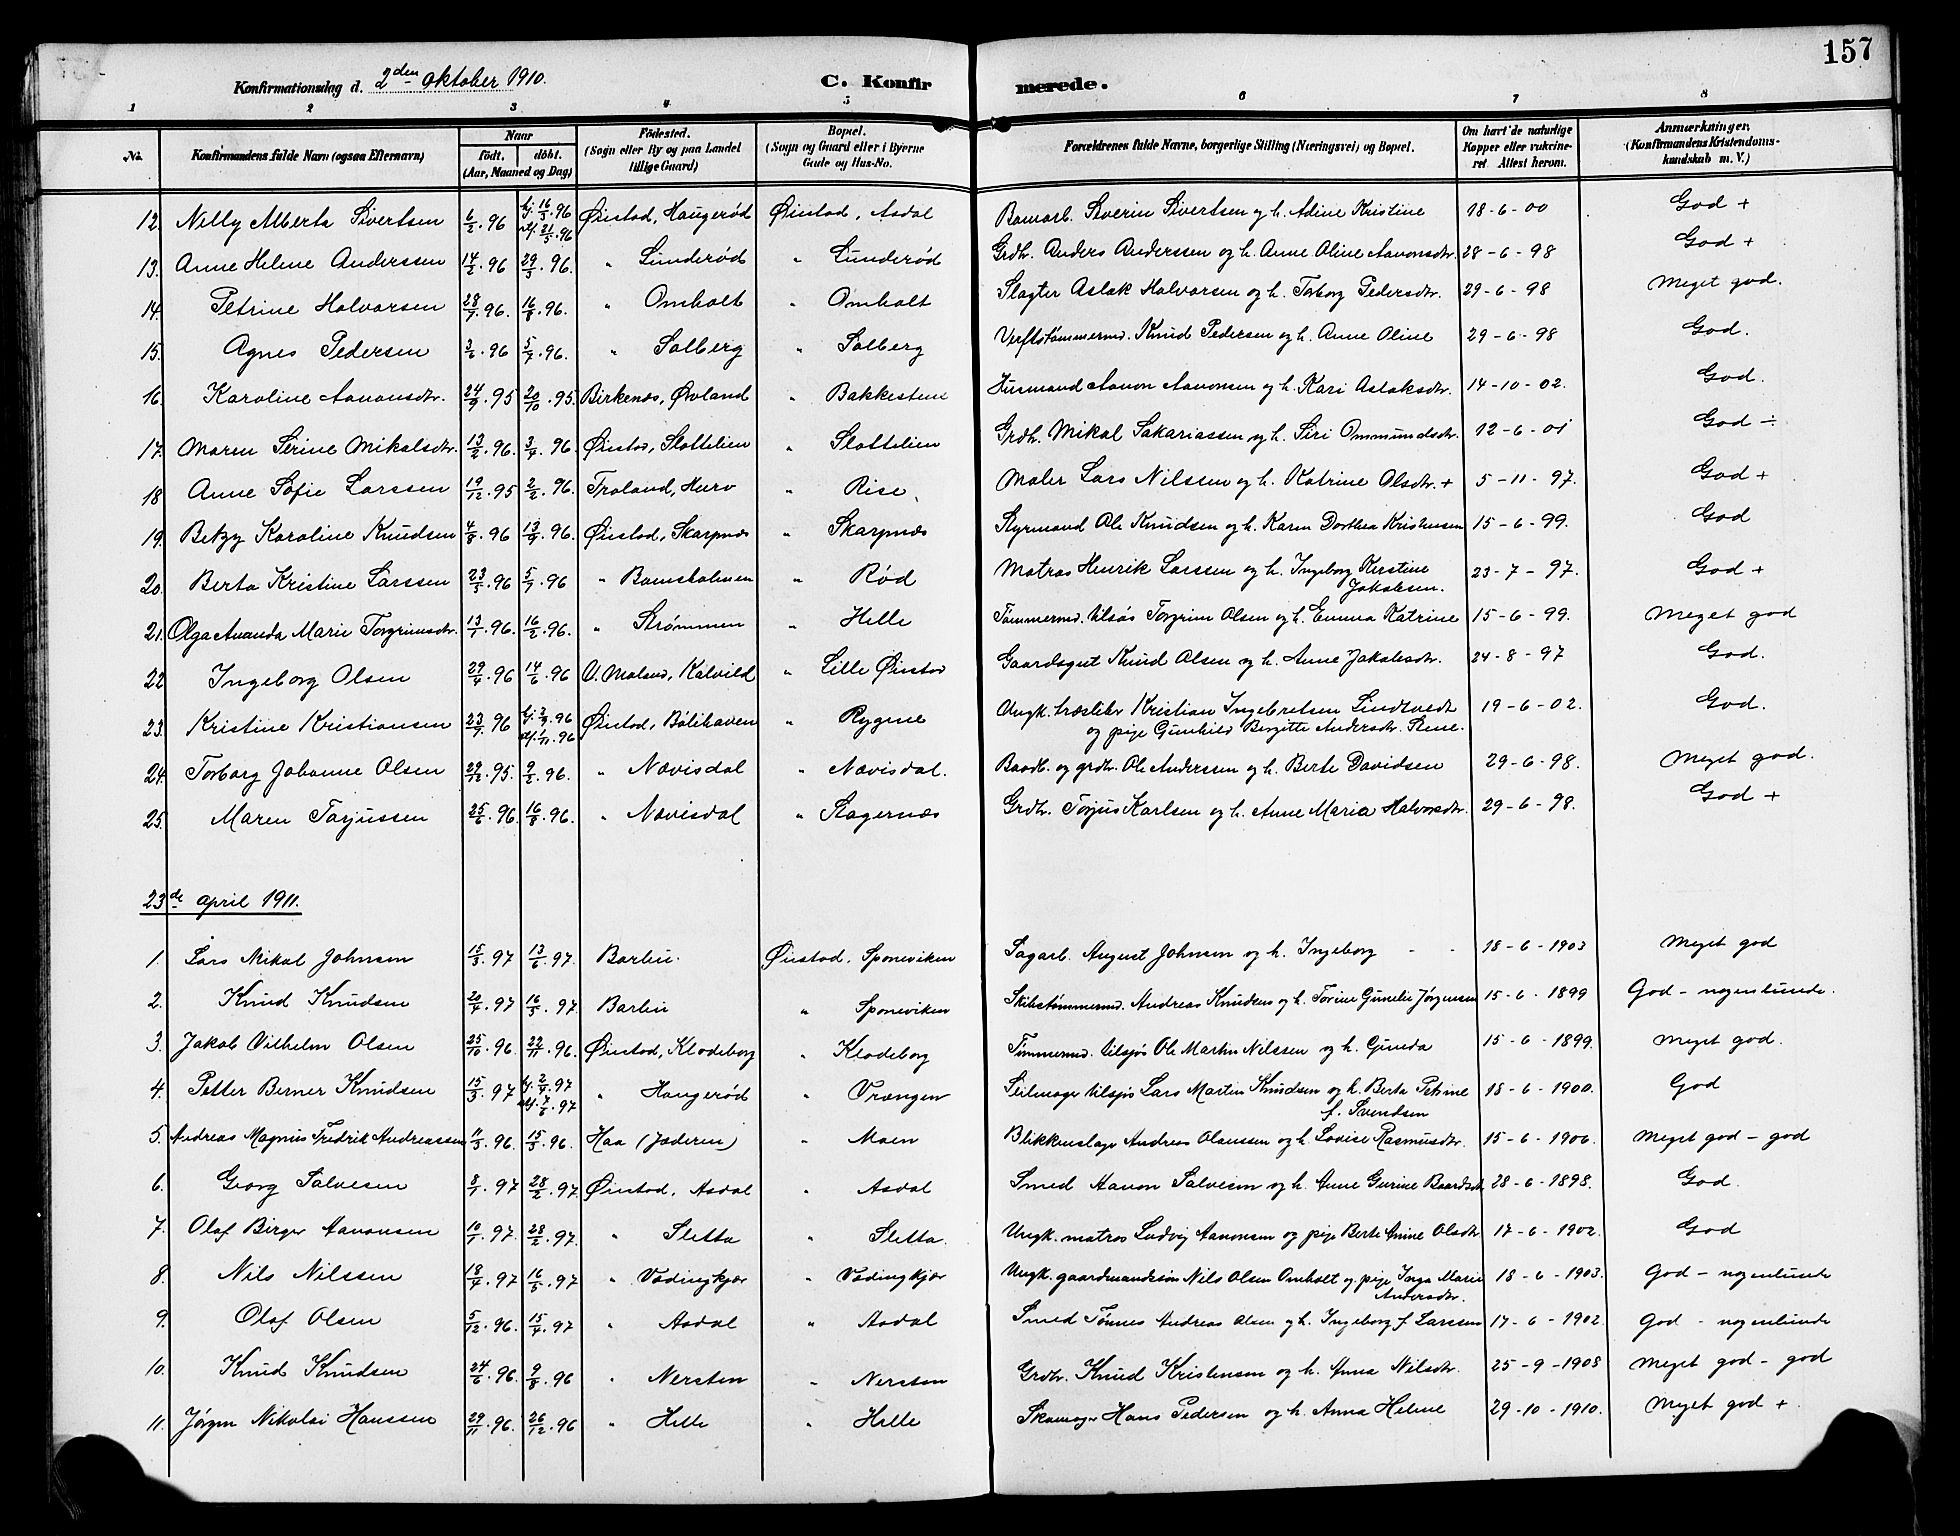 157
Konfirmationsdag d. 2den oktober 1910. C. Konfirmerede.
1 2 3 4 5 6 7 8
No. Konfirmandens fulde Navn (ogsaa Efternavn) Naar født, døbt. (Aar, Maaned og Dag) Fødested. (Sogn eller By og paa Landet tillige Gaard) Bopæl. (Sogn og Gaard eller i Byerne Gade og Hus-No. Forældrenes fulde Navne, borgerlige Stilling (Næringsvei) og Bopæl. Om havt de naturlige Kopper eller vakcineret Attest herom. Anmærkninger. (Konfirmandens Kristendomskundskab m. V.)
12. Nelly Alberta Sivertsen 6/2.96 hj. 16/3.96 kf. 21/5.96 Øiestad, Haugerød Øiestad, Asdal Severin Sivertsen og h. Adine Kristine 18-6-00 God +
13. Anne Helene Anderssen 14/2.96 29/3.96. " Lunderød " Lunderød Grdb. Anders Anderssen og h. Anne Oline Aavonsdtr. 28-6-98 God +
14. Petrine Halvorsen 28/7.96. 16/8.96. " Omholt " Omholt Slagter Aslak Halvorsen og h. Torborg Pedersdtr. 29-6-98 Meget god.
15. Agnes Pedersen 3/6.96 5/7.96. " Solberg " Solberg Verftstømmermd. Knud Pedersen og h. Anne Oline 29-6-98 God.
16. Karoline Aanonsdtr. 24/9.95 20/10.95. Birkenæs, Øvland " Bakkesteen Husmand Aanon Aanonsen og h. Kari Aslaksdtr. 14-10-02. God.
17. Maren Serine Mikalsdtr. 13/2.96. 3/4.96. Øiestad, Slottelien " Slottelien Grdb. Mikal Sakariassen og h. Siri Ommundsdtr. 12-6-01 God ÷
18 Anne Sofie Larssen 19/12.95 2/2.96. Froland, Hurv " Rise. Maler Lars Nilssen og h. Katrine Olsdtr. + 5-11-97. God +
19. Betzy Karoline Knudsen 4/8.96 13/9.96. Øiestad, Skarpnæs " Skarpnæs Styrmand Ole Knudsen og h. Karen Dorthea Kristensen 15-6-99. God
20. Berta Kristine Larssen 23/5.96 5/7.96 " " Rød Matros Henrik Larssen og h. Ingeborg Kerstine Jakobsen. 23-7-97. God +
21. Olga Amanda Marie Torgrimsdtr. 13/1.96. 16/2.96. " Strømmen " Helle Tømmermd. tilsøs Torgrim Olsen og h. Emma Katrine 15-6-99. Meget god
22 Ingeborg Olsen 29/4.96 14/6.96 Ø. Moland, Kalvild " Lille Øiestad Gaardsgut Knud Olsen og h. Anne Jakobsdtr. 24-8-97 God.
23. Kristine Kristiansen 23/7.96 hj. 2/9.96 kf. 1/11.96 Øiestad, Bølihaven " Rygene Ungk. træsliber Kristian Ingebretsen Lindtvedt og pige Gunhild Birgitte Andersdtr. Rene. 19-6-02. God.
24. Torborg Johanne Olsen 29/12.95. 9/2.96. " Nævisdal " Nævisdal. Baadb. og grdbr. Ole Anderssen og h. Berte Davidsen 29-6-98. Meget god.
25. Maren Tarjussen 25/6.96 16/8.96. " Nævisdal " Stagernæs Grdbr. Torjus Karlsen og h. Anne Maria Halvorsdtr. 29-6-98. God +
23de april 1911.
1. Lars Mikal Johnsen 15/3.97 13/6.97. Barbu. Øiestad, Sponeviken Sagarb. August Johnsen og h. Ingeborg - - 18-6-1903 Meget god
2. Knud Knudsen 20/4.97 16/5.97. Barbu " Sponeviken Skibstømmermd. Andreas Knudsen og h. Torine Gunelie Jørgensen 15-6-1899 God - nogenlunde.
3. Jakob Vilhelm Olsen 25/10.96. 22/11.96. Øiestad, Klodeborg " Klodeborg Tømmermd. tilsjøs Ole Martin Nilssen og h. Gunda 15-6-1899. Meget god.
4. Petter Berner Knudsen 15/3.97 hj. 2/4.97 kf. 7/6.97 " Haugerød " Vrængen Seilmager tilsjøs Lars Martin Knudsen og h. Berta Petrine f. Svendsen 18-6-1900. God
5. Andreas Magnus Fredrik Andreassen 11/3.96. 15/3.96. Haa (Jæderen) " Moen Blikkenslager Andreas Olaussen og h. Lovise Rasmusdtr. 15-6-1906. Meget god - god
6. Georg Salvesen 8/1.97 28/2.97. Øiestad, Asdal " Asdal Smed Aanon Salvesen og h. Anne Gurine Baardsdtr 28-6-1898. God.
7. Olaf Birger Aanonsen 10/1.97. 28/2.97. " Sletta " Sletta. Ungk. matros Ludvig Aanonsen og pige Berte Anine Olsdtr 17-6-1902. God
8. Nils Nilssen 18/4.97 16/5.97 " Vadingkjær " Vadingkjær Ungk. gaardmandssøn Nils Olsen Omholt og pige Inga Marie Andersdtr. 18-6-1903. God - nogenlunde
9. Olaf Olsen 5/12.96. 15/4.97 " Asdal " Asdal Smed Tønnes Andreas Olsen og h. Ingeborg f. Larssen 17-6-1902. God - nogenlunde
10. Knud Knudsen 24/6.96. 9/8.96 " Nersten " Nersten Grdbr. Knud Kristensen og h. Anna Nilsdtr. 25-9-1908 Meget god - god
11. Jørgen Nikolai Hanssen 29/11.96. 26/12.96 " Helle " Helle Skomager Hans Pedersen og h. Anna Helene 29-10-1910. Meget god +